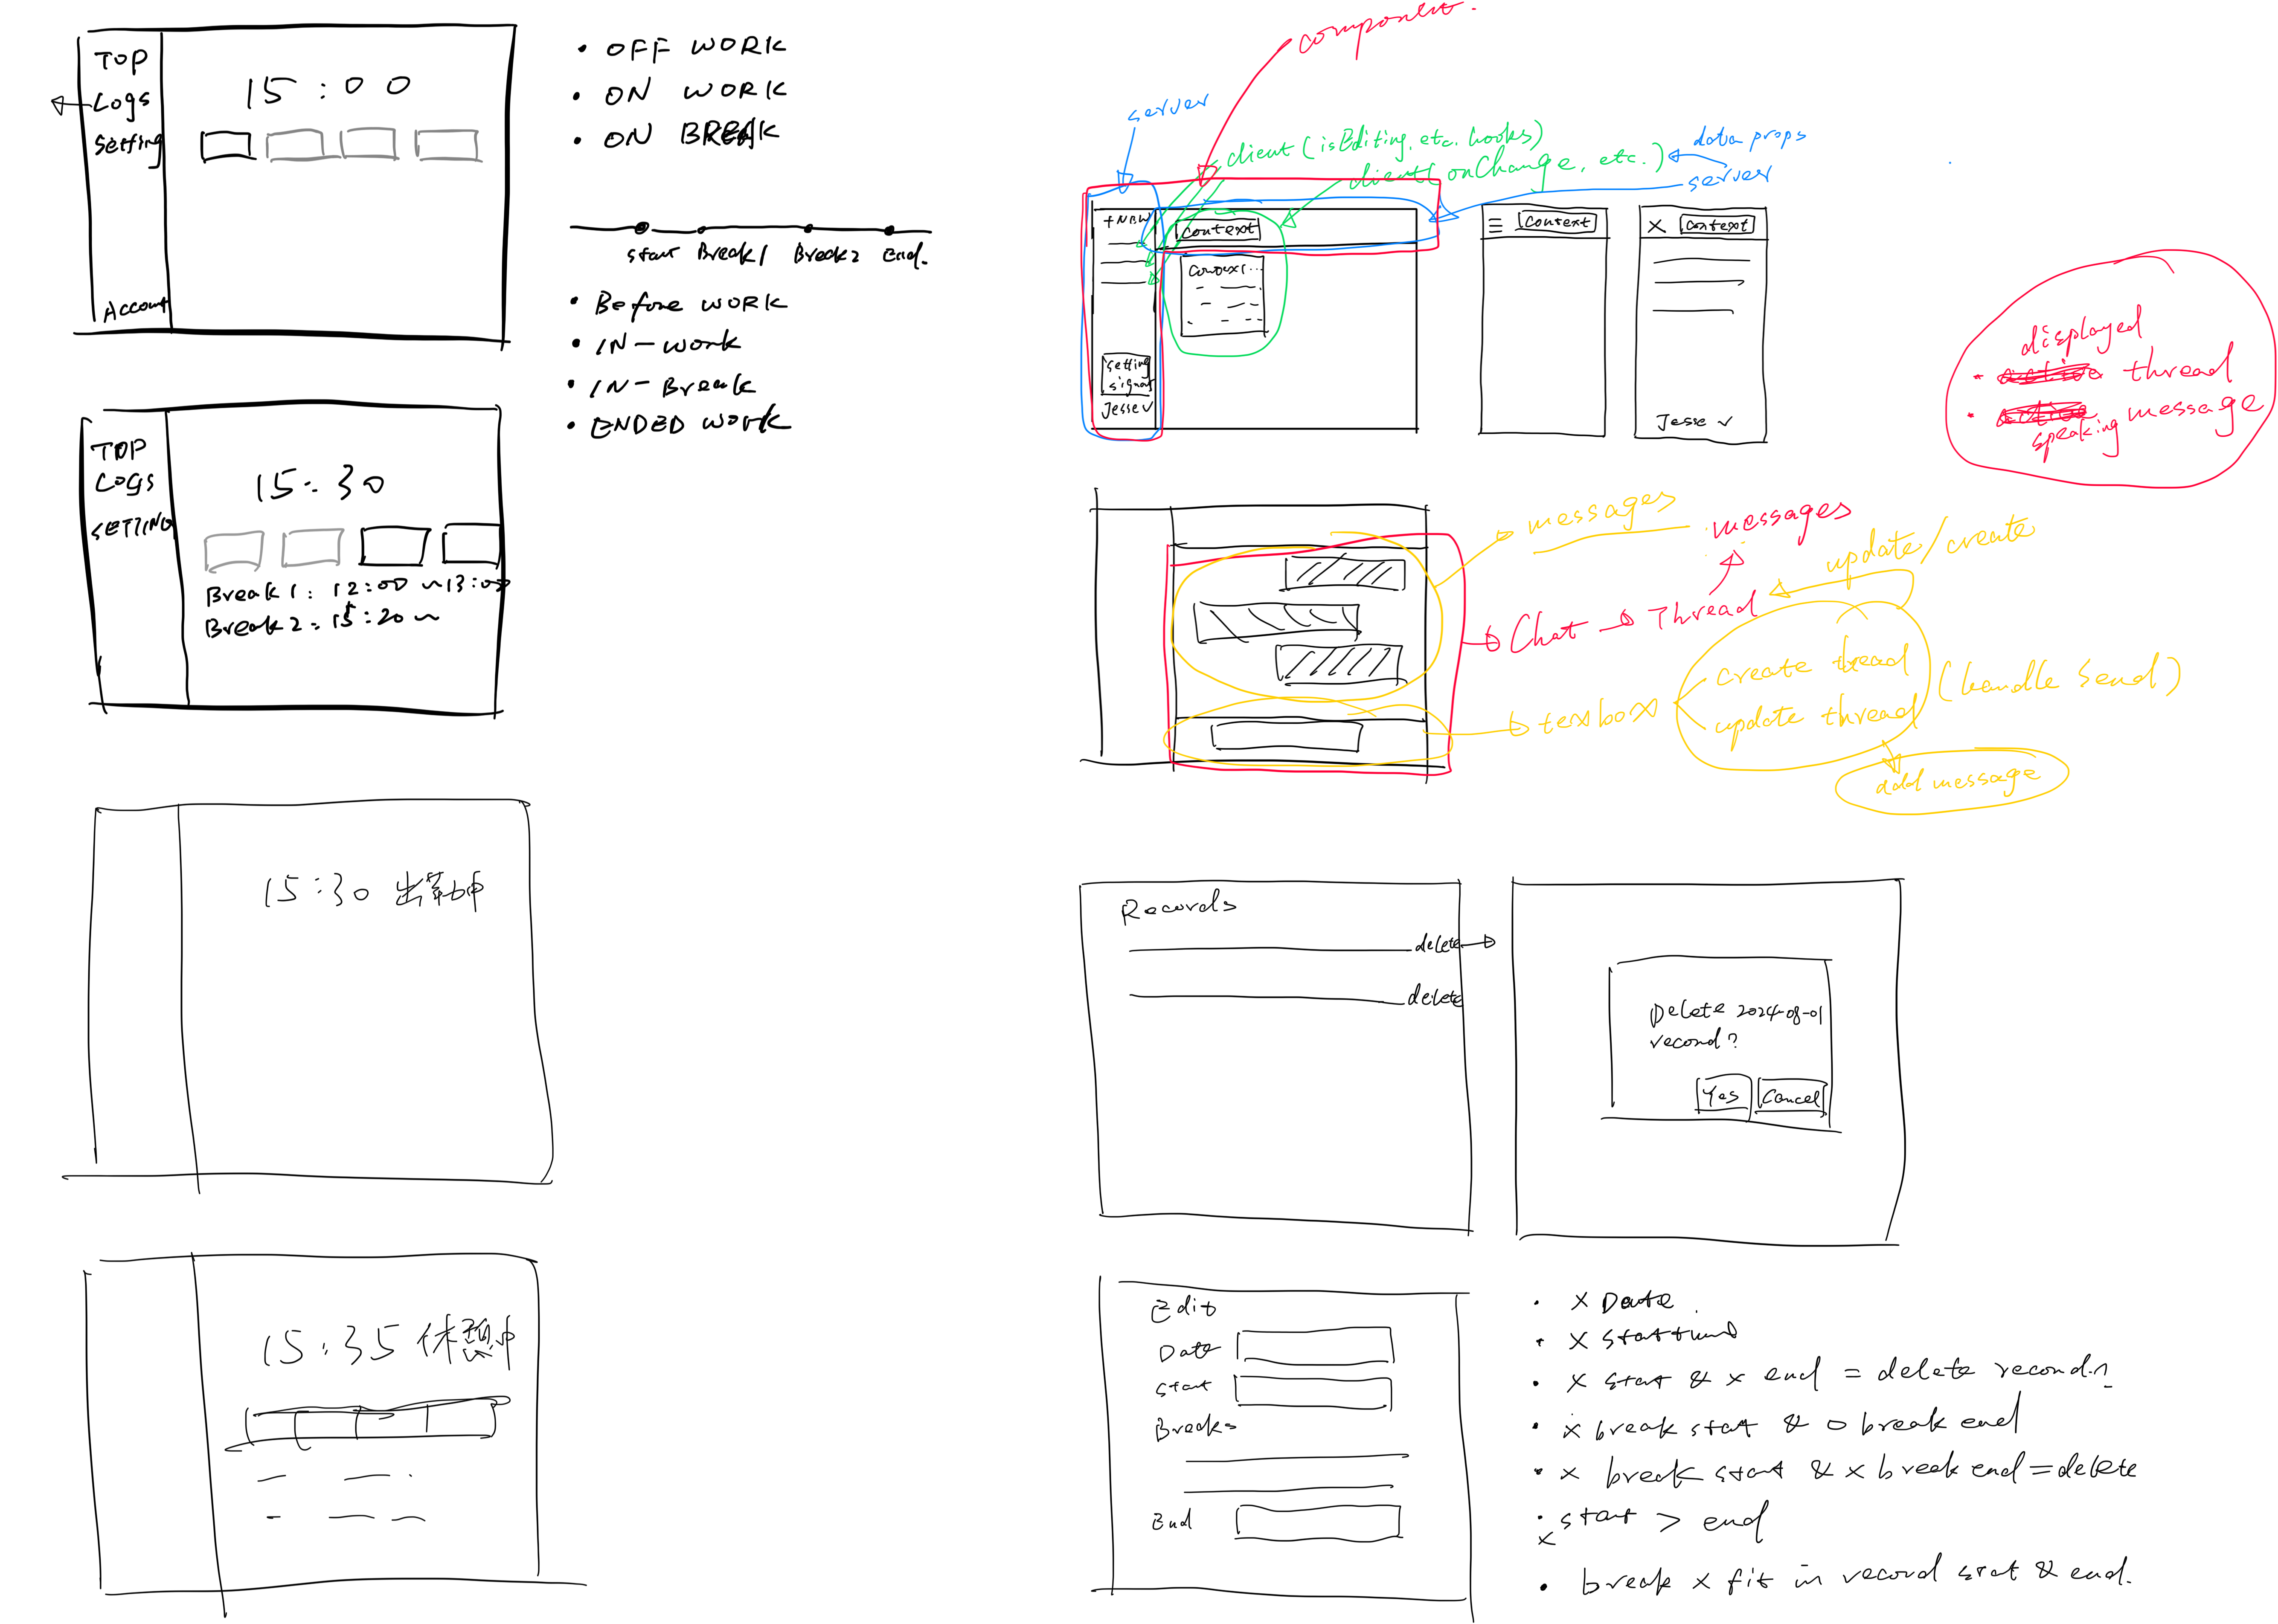 TOP
Logs
Setting
Account
15:00
• OFF WORK
• ON WORK
• ON BREAK
start Break1 Break2 End.
• Before WORK
• IN-work
• IN-Break
• ENDED WORK
TOP
LOGS
SETTING
15:30
Break1: 12:00~13:00
Break2: 15:20~
15:30 出勤中
15:35 休憩中
component.
server
client (isEditing, etc. hooks)
client (onChange, etc.)
data props
server
+NEW
context
context...
setting
signout
Jesse ✓
☰ context
× context
Jesse ✓
displayed
• thread
• message
speaking
messages
messages
update/create
Chat → Thread
texbox
create tread
update thread
(handle send)
add message
Records
delete
delete
Delete 2024-08-01
record?
Yes Cancel
Edit
Date
start
Breaks
End
• × Date.
• × start &
• × start & × end = delete record?
• × break start & o break end
• × break start & × break end = delete
• × start > end
• break × fit in record start & end.